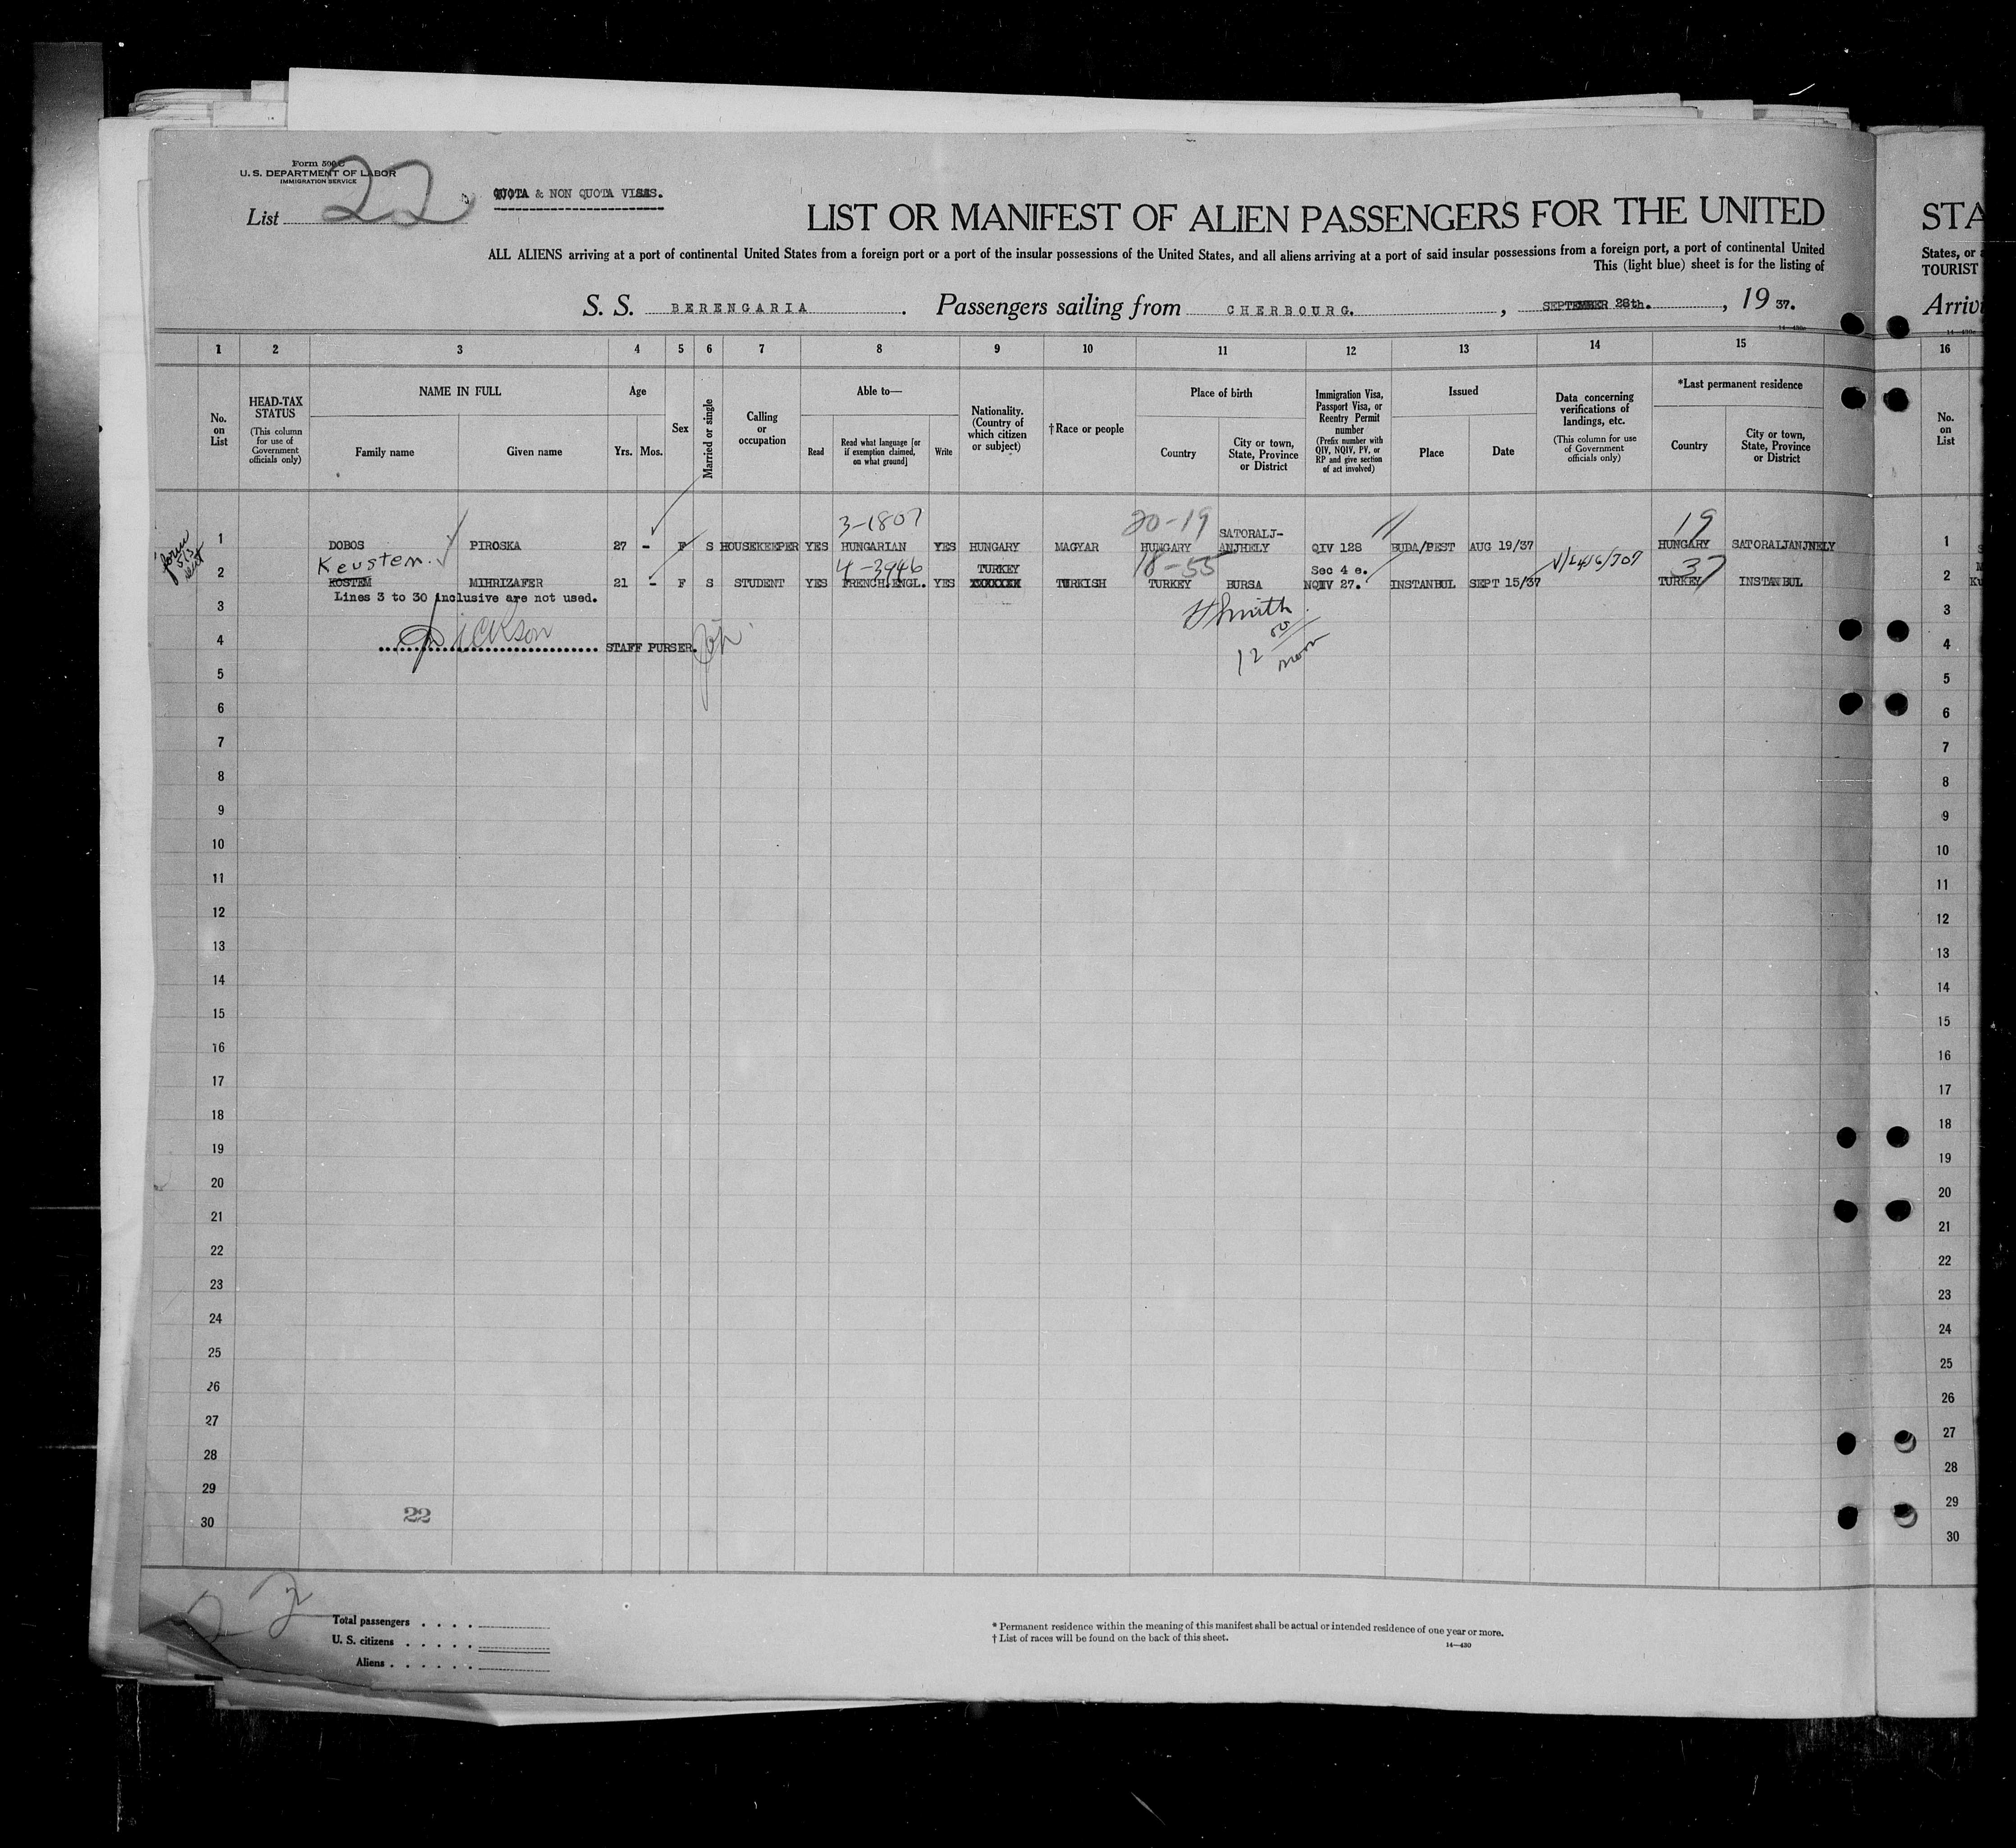 Form 500 C
U. S. DEPARTMENT OF LABOR
IMMIGRATION SERVICE
List 22
QUOTA & NON QUOTA VISAS.
LIST OR MANIFEST OF ALIEN PASSENGERS FOR THE UNITED STA
ALL ALIENS arriving at a port of continental United States from a foreign port or a port of the insular possessions of the United States, and all aliens arriving at a port of said insular possessions from a foreign port, a port of continental United States, or
This (light blue) sheet is for the listing of TOURIST
S. S. BERENGARIA. Passengers sailing from CHERBOURG. , SEPTEMBER 28th. , 19 37. Arrivi
14—430c 14—430c
1 2 3 4 5 6 7 8 9 10 11 12 13 14 15 16
No. on List
HEAD-TAX STATUS
(This column for use of Government officials only)
NAME IN FULL
Family name
Given name
Age
Yrs.
Mos.
Sex
Married or single
Calling or occupation
Able to—
Read
Read what language [or if exemption claimed, on what ground]
Write
Nationality. (Country of which citizen or subject)
†Race or people
Place of birth
Country
City or town, State, Province or District
Immigration Visa, Passport Visa, or Reentry Permit number
(Prefix number with QIV, NQIV, PV, or RP and give section of act involved)
Issued
Place
Date
Data concerning verifications of landings, etc.
(This column for use of Government officials only)
*Last permanent residence
Country
City or town, State, Province or District
No. on List
3-1807 20-19 SATORALJ- 19
1 DOBOS PIROSKA 27 - F S HOUSEKEEPER YES HUNGARIAN YES HUNGARY MAGYAR HUNGARY ANJHELY QIV 128 BUDA/PEST AUG 19/37 HUNGARY SATORALJANJNELY 1
Keustem. 4-3946 TURKEY 18-55 Sec 4 e. 37
2 KOSTEM MIHRIZAFER 21 - F S STUDENT YES FRENCH.ENGL. YES XXXXXXX TURKISH TURKEY BURSA NQIV 27. INSTANBUL SEPT 15/37 TURKEY INSTANBUL 2
Lines 3 to 30 inclusive are not used.
3 3
Smith
4 STAFF PURSER. 12 4
5 5
6 6
7 7
8 8
9 9
10 10
11 11
12 12
13 13
14 14
15 15
16 16
17 17
18 18
19 19
20 20
21 21
22 22
23 23
24 24
25 25
26 26
27 27
28 28
29 29
30 30
22
22
Total passengers
U. S. citizens
Aliens
* Permanent residence within the meaning of this manifest shall be actual or intended residence of one year or more.
† List of races will be found on the back of this sheet.
14—430